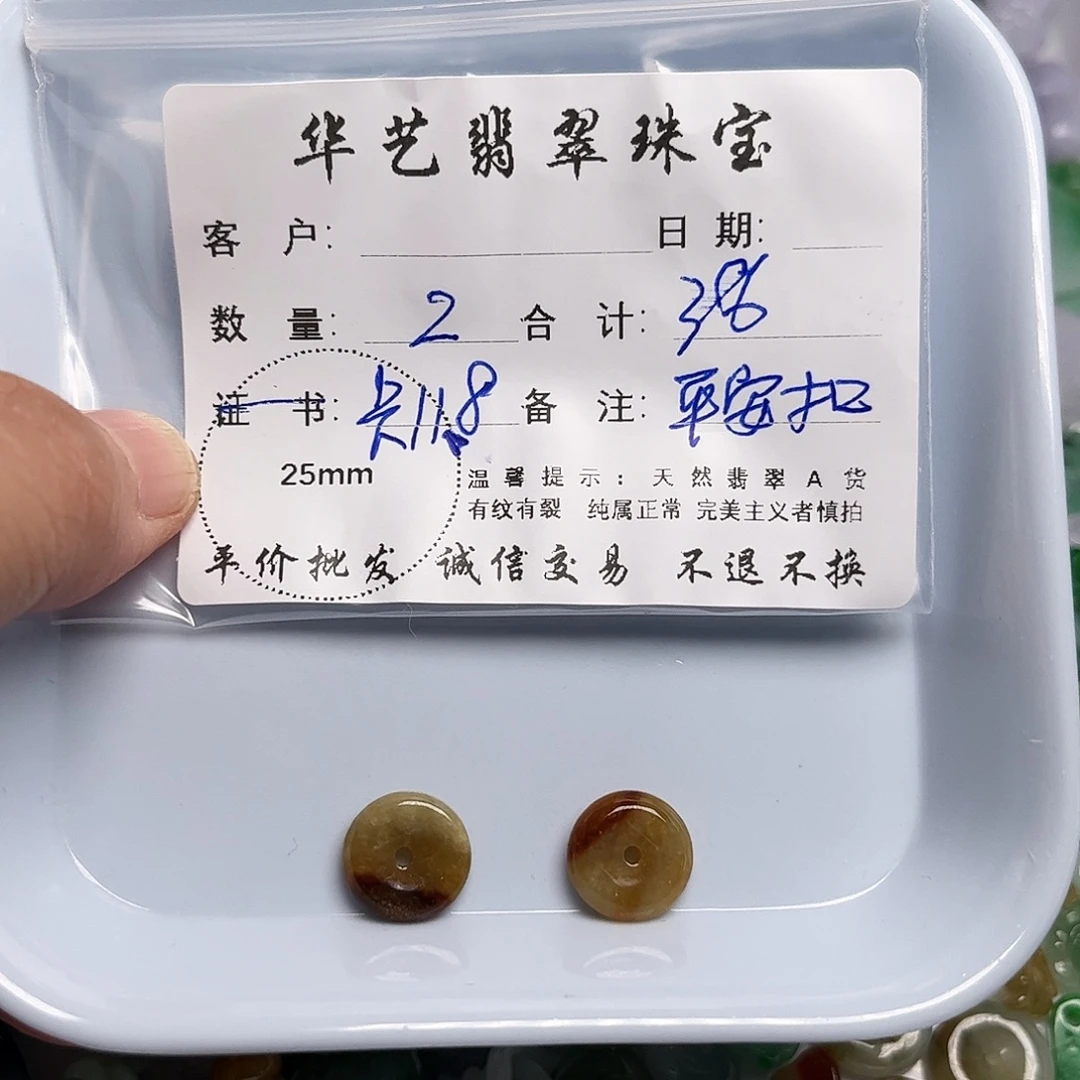 华艺翡翠珠宝
客 户: 日 期:
数 量: 2 合 计: 38
证 书: 尺11.8 备 注: 平安扣
25mm
温馨提示: 天然翡翠A货
有纹有裂 纯属正常 完美主义者慎拍
平价批发 诚信交易 不退不换